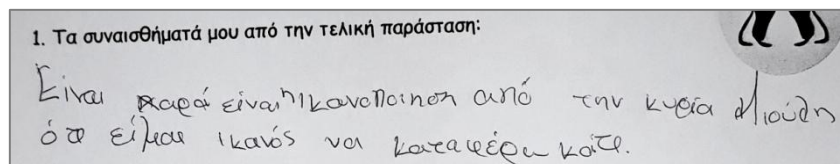 1. Τα συναισθήματά μου από την τελική παράσταση:
Είναι χαρά είναι η ικανοποίηση από την κυρία
ότι είμαι ικανός να καταφέρω κάτι.